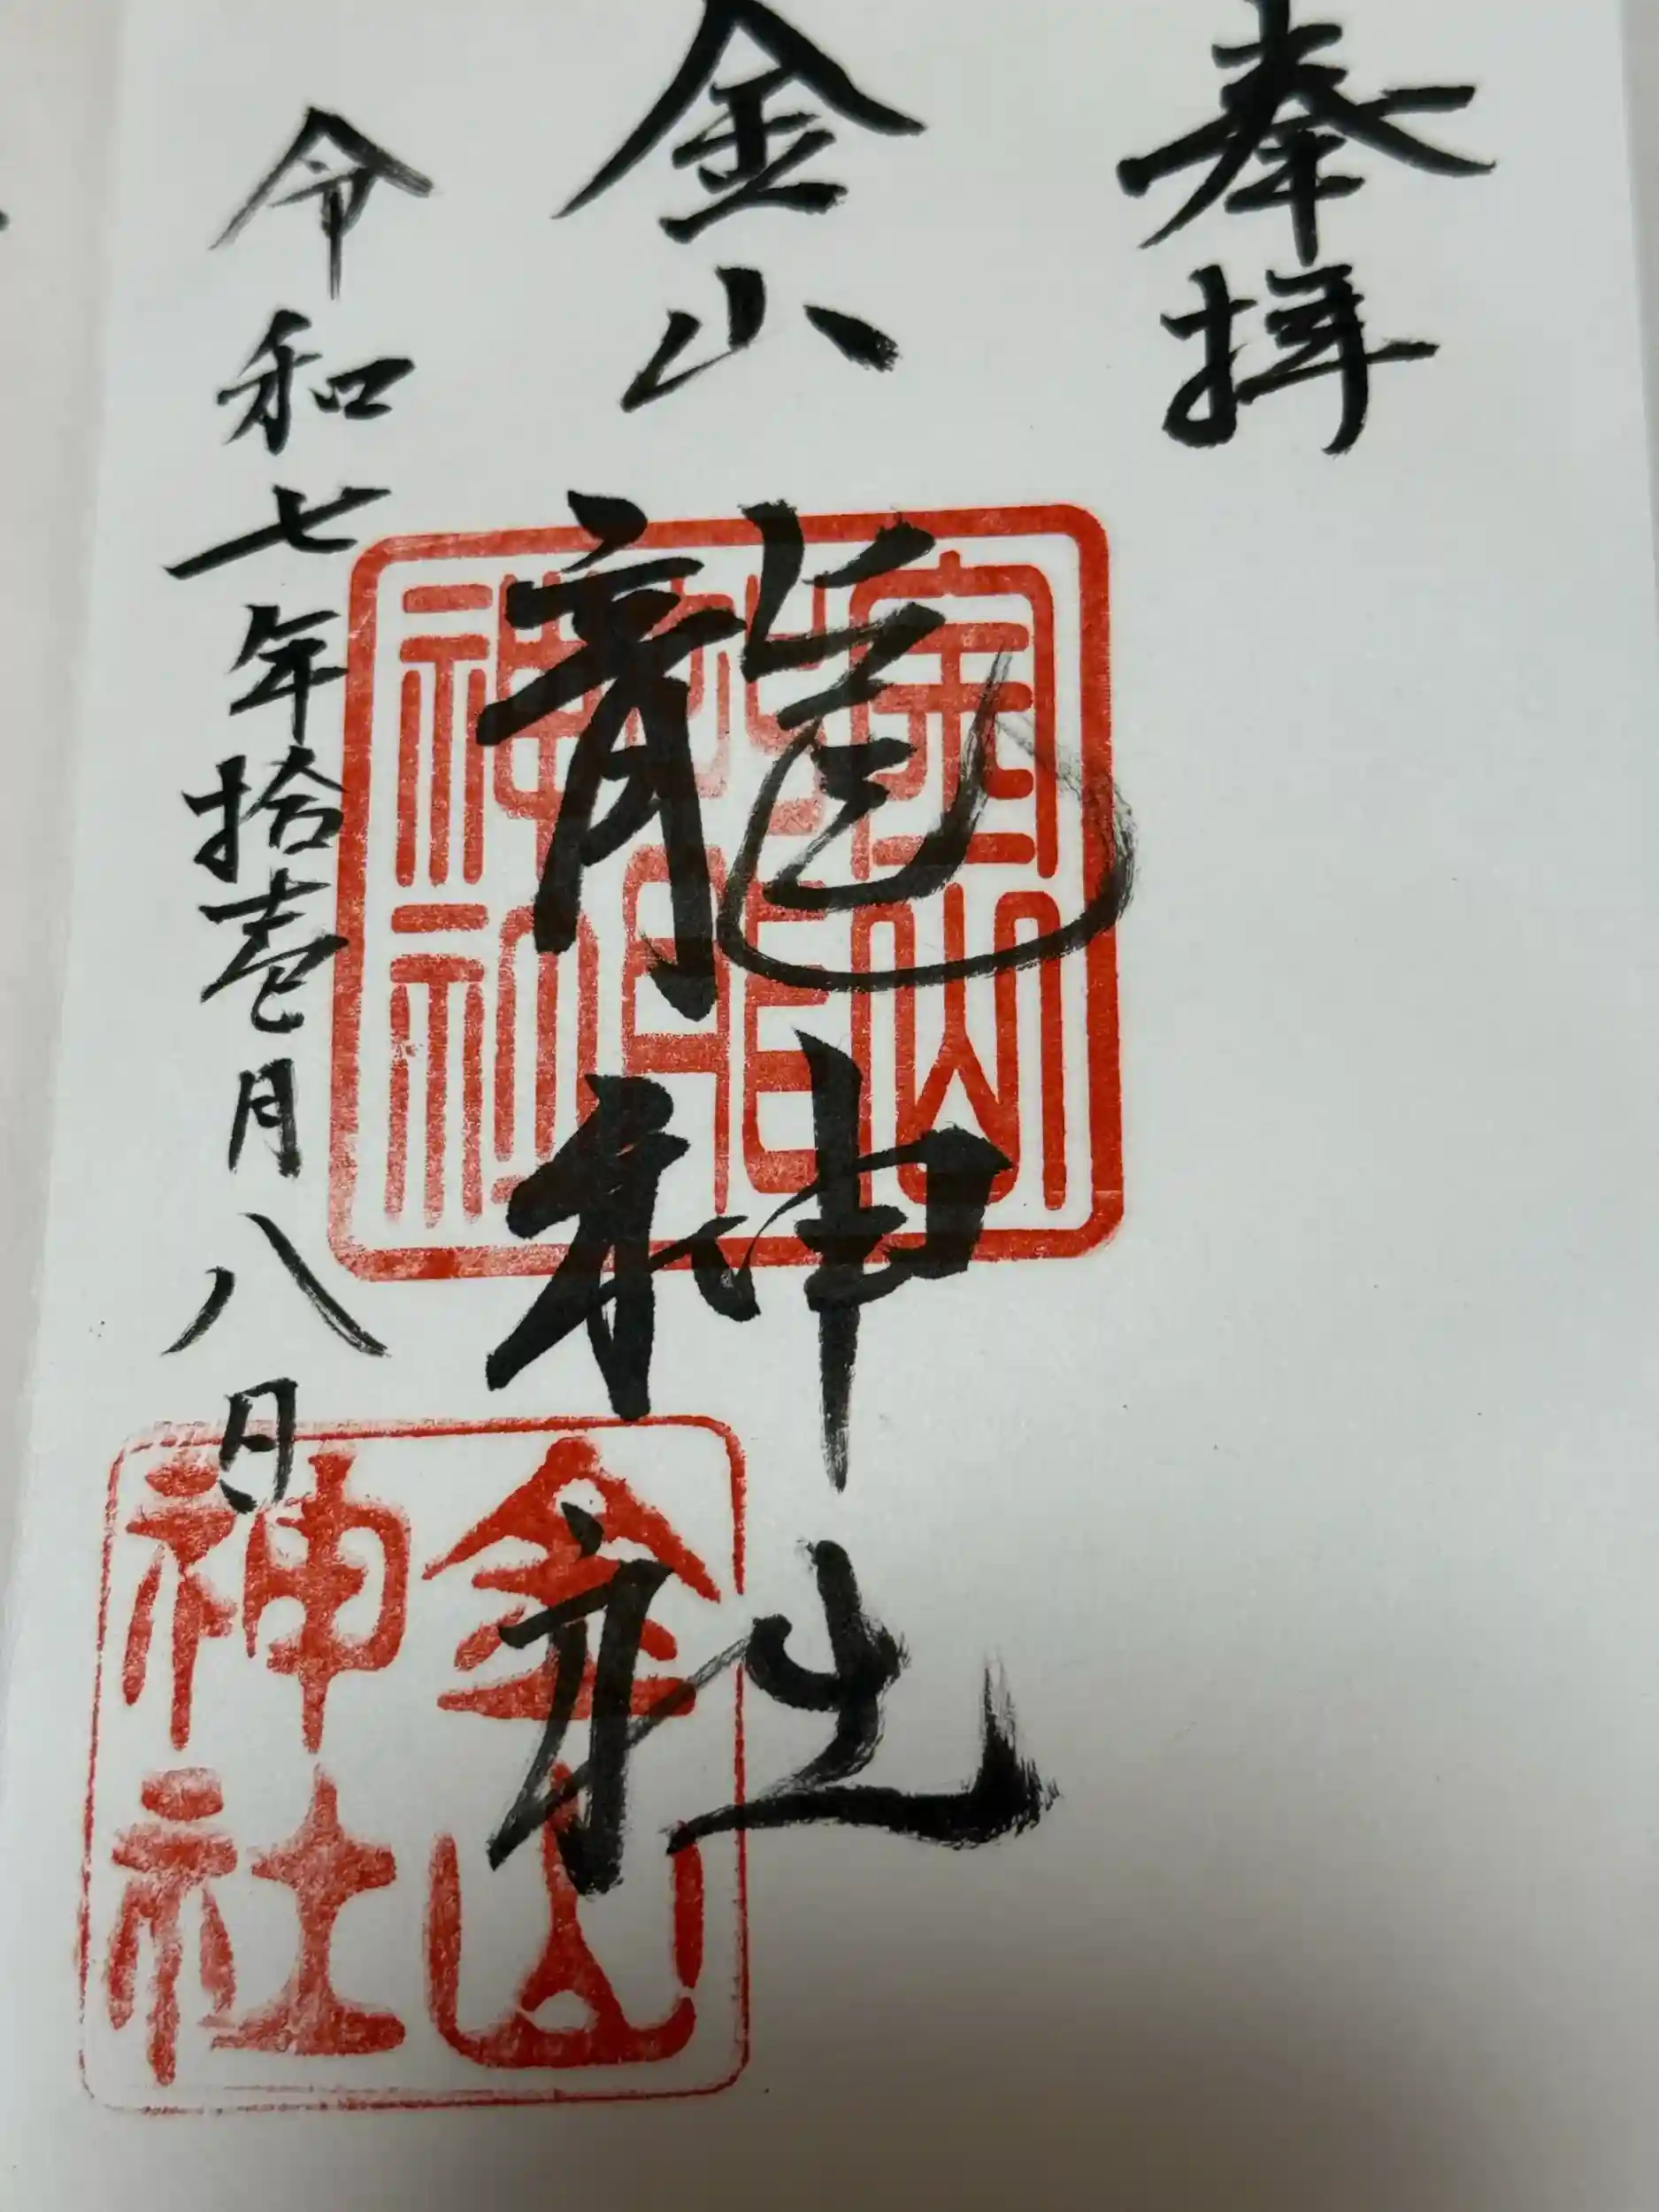 奉拝
金山
龍神社
令和七年拾壱月八日
金山
神社